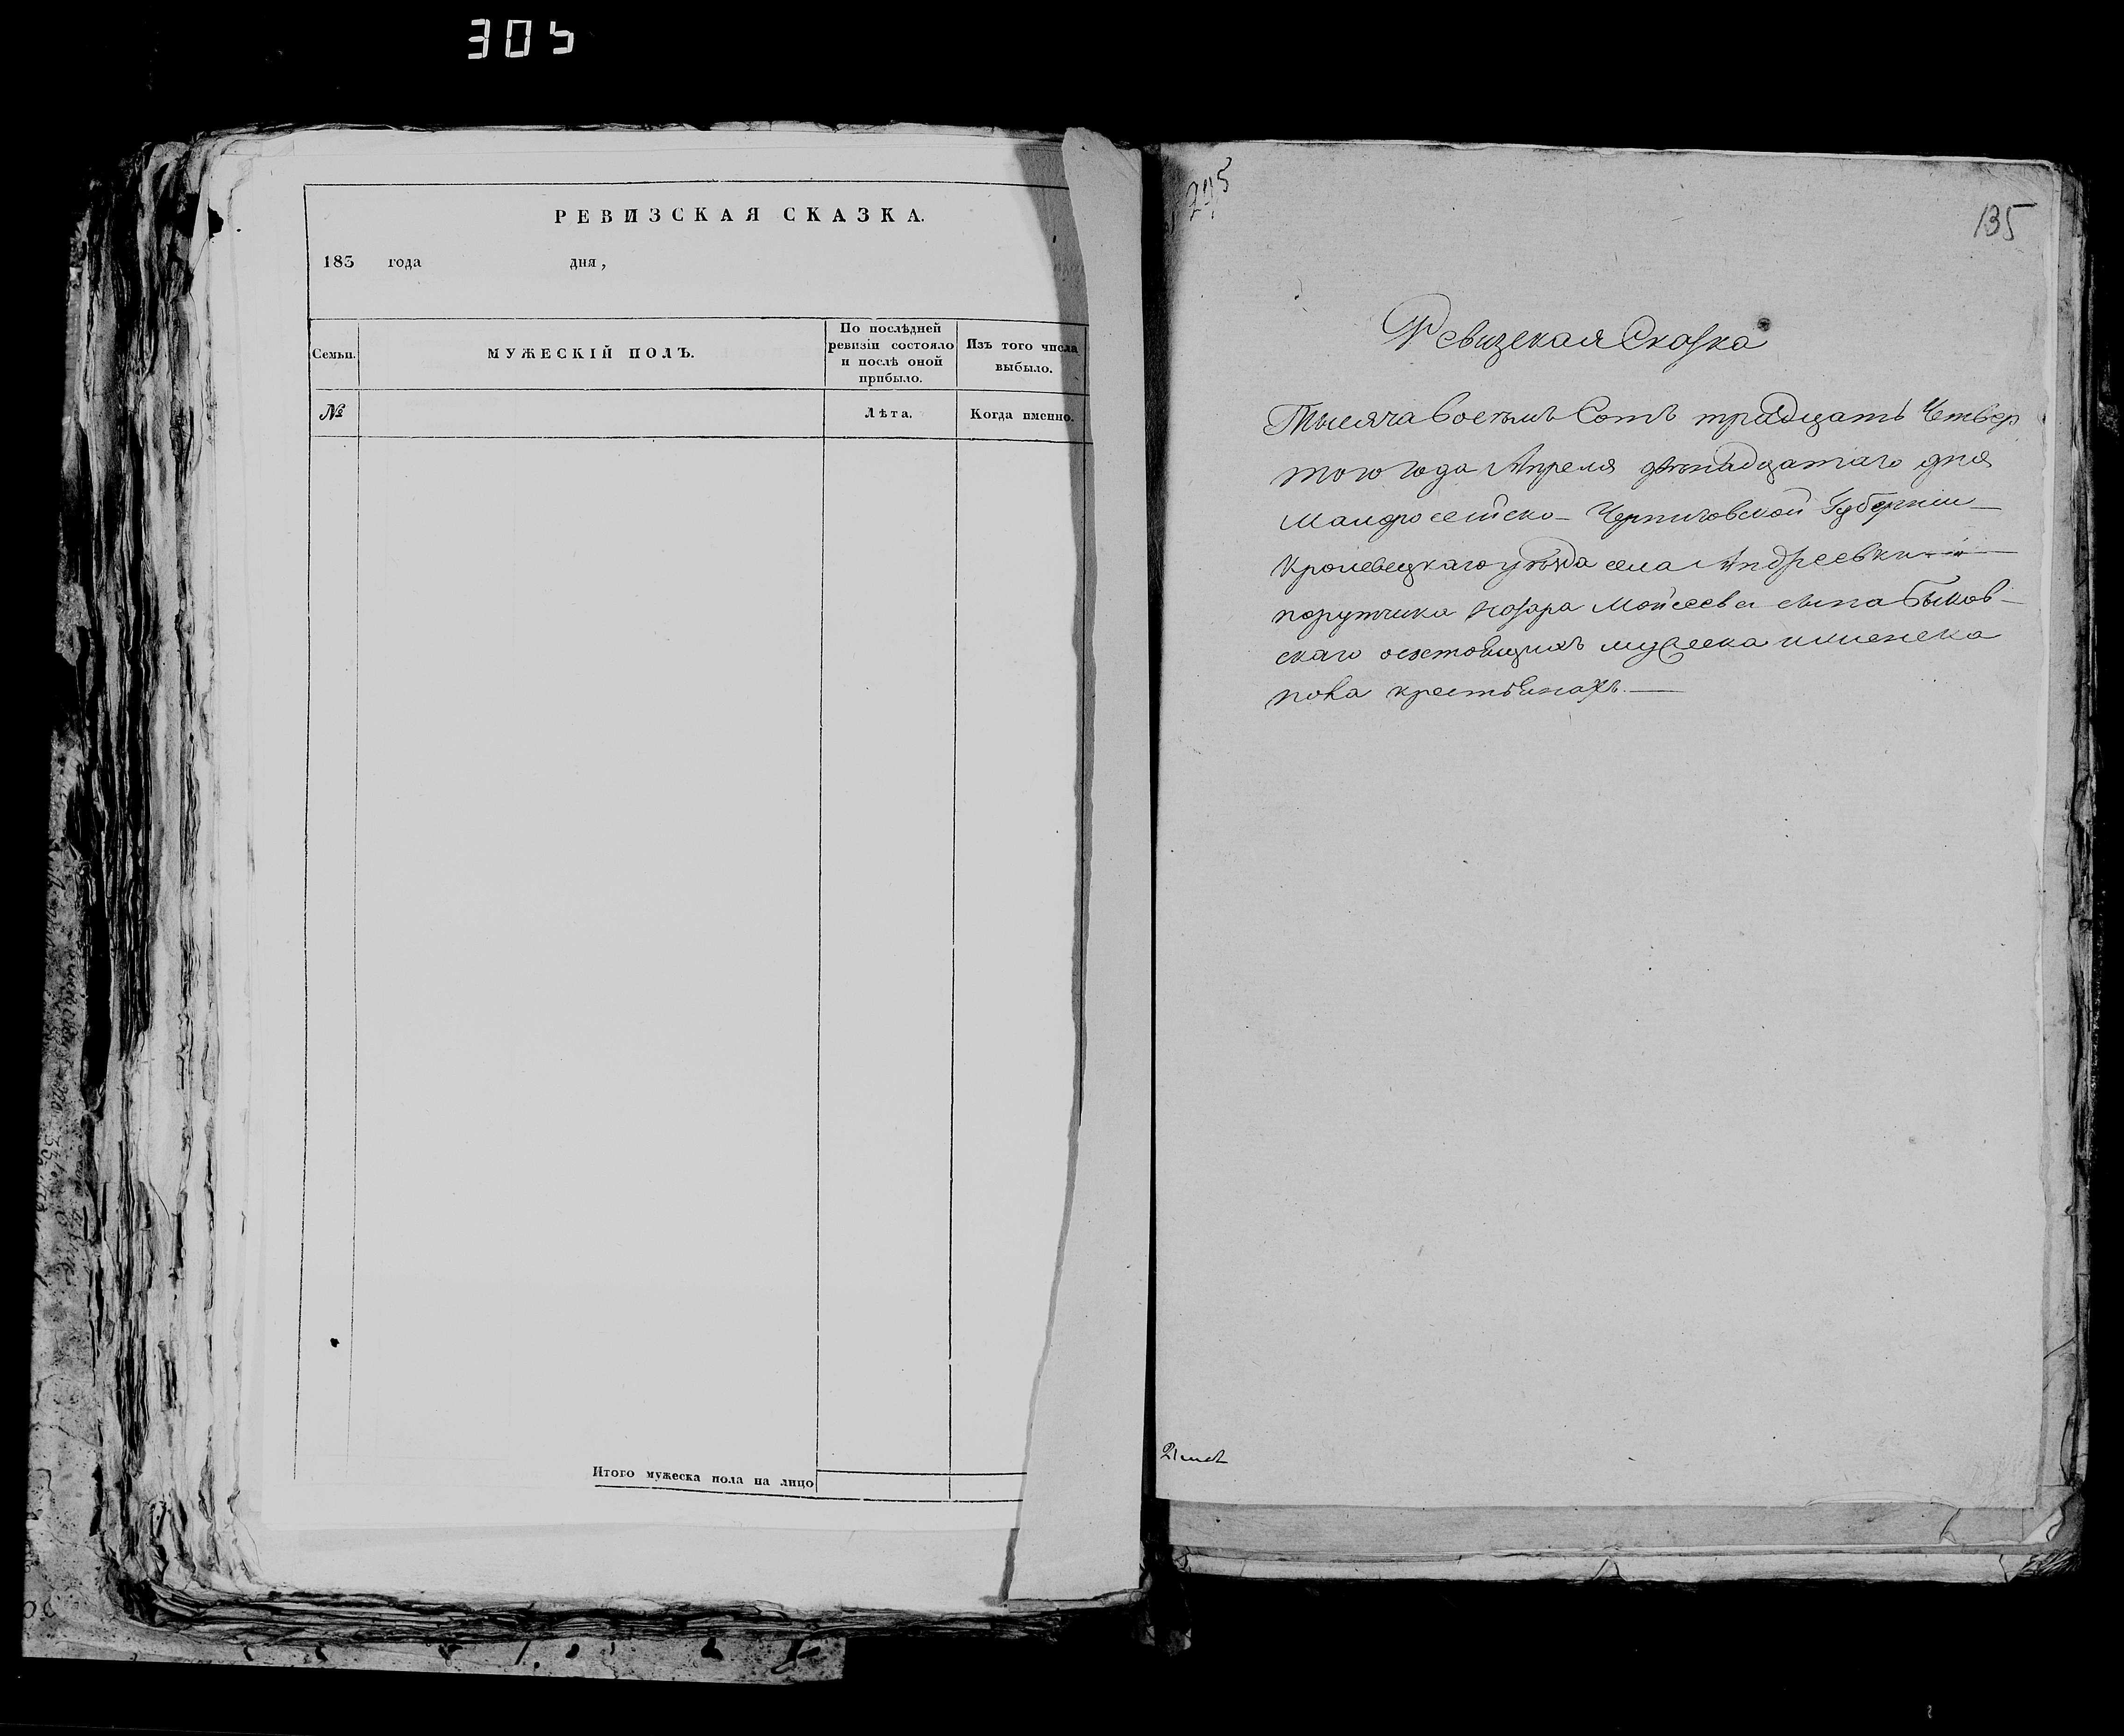 305
РЕВИЗСКАЯ СКАЗКА.
183 года дня,
Семьи.
МУЖЕСКІЙ ПОЛЪ.
По послѣдней
ревизіи состояло
и послѣ оной
прибыло.
Изъ того числа
выбыло.
№
Лѣта.
Когда именно.
Итого мужеска пола на лицо
135
Ревизская Сказка
Тысяча восемъ Сотъ тридцать Четвер
того года Апреля двенадцатаго дня
Малоросейско- Черниговской Губернии
Кролевецкаго уѣзда села Андреевки
порутчика Назара Мойсеева сына Быков-
скаго осостоящихъ мужеска и женска
пола крестьянахъ.